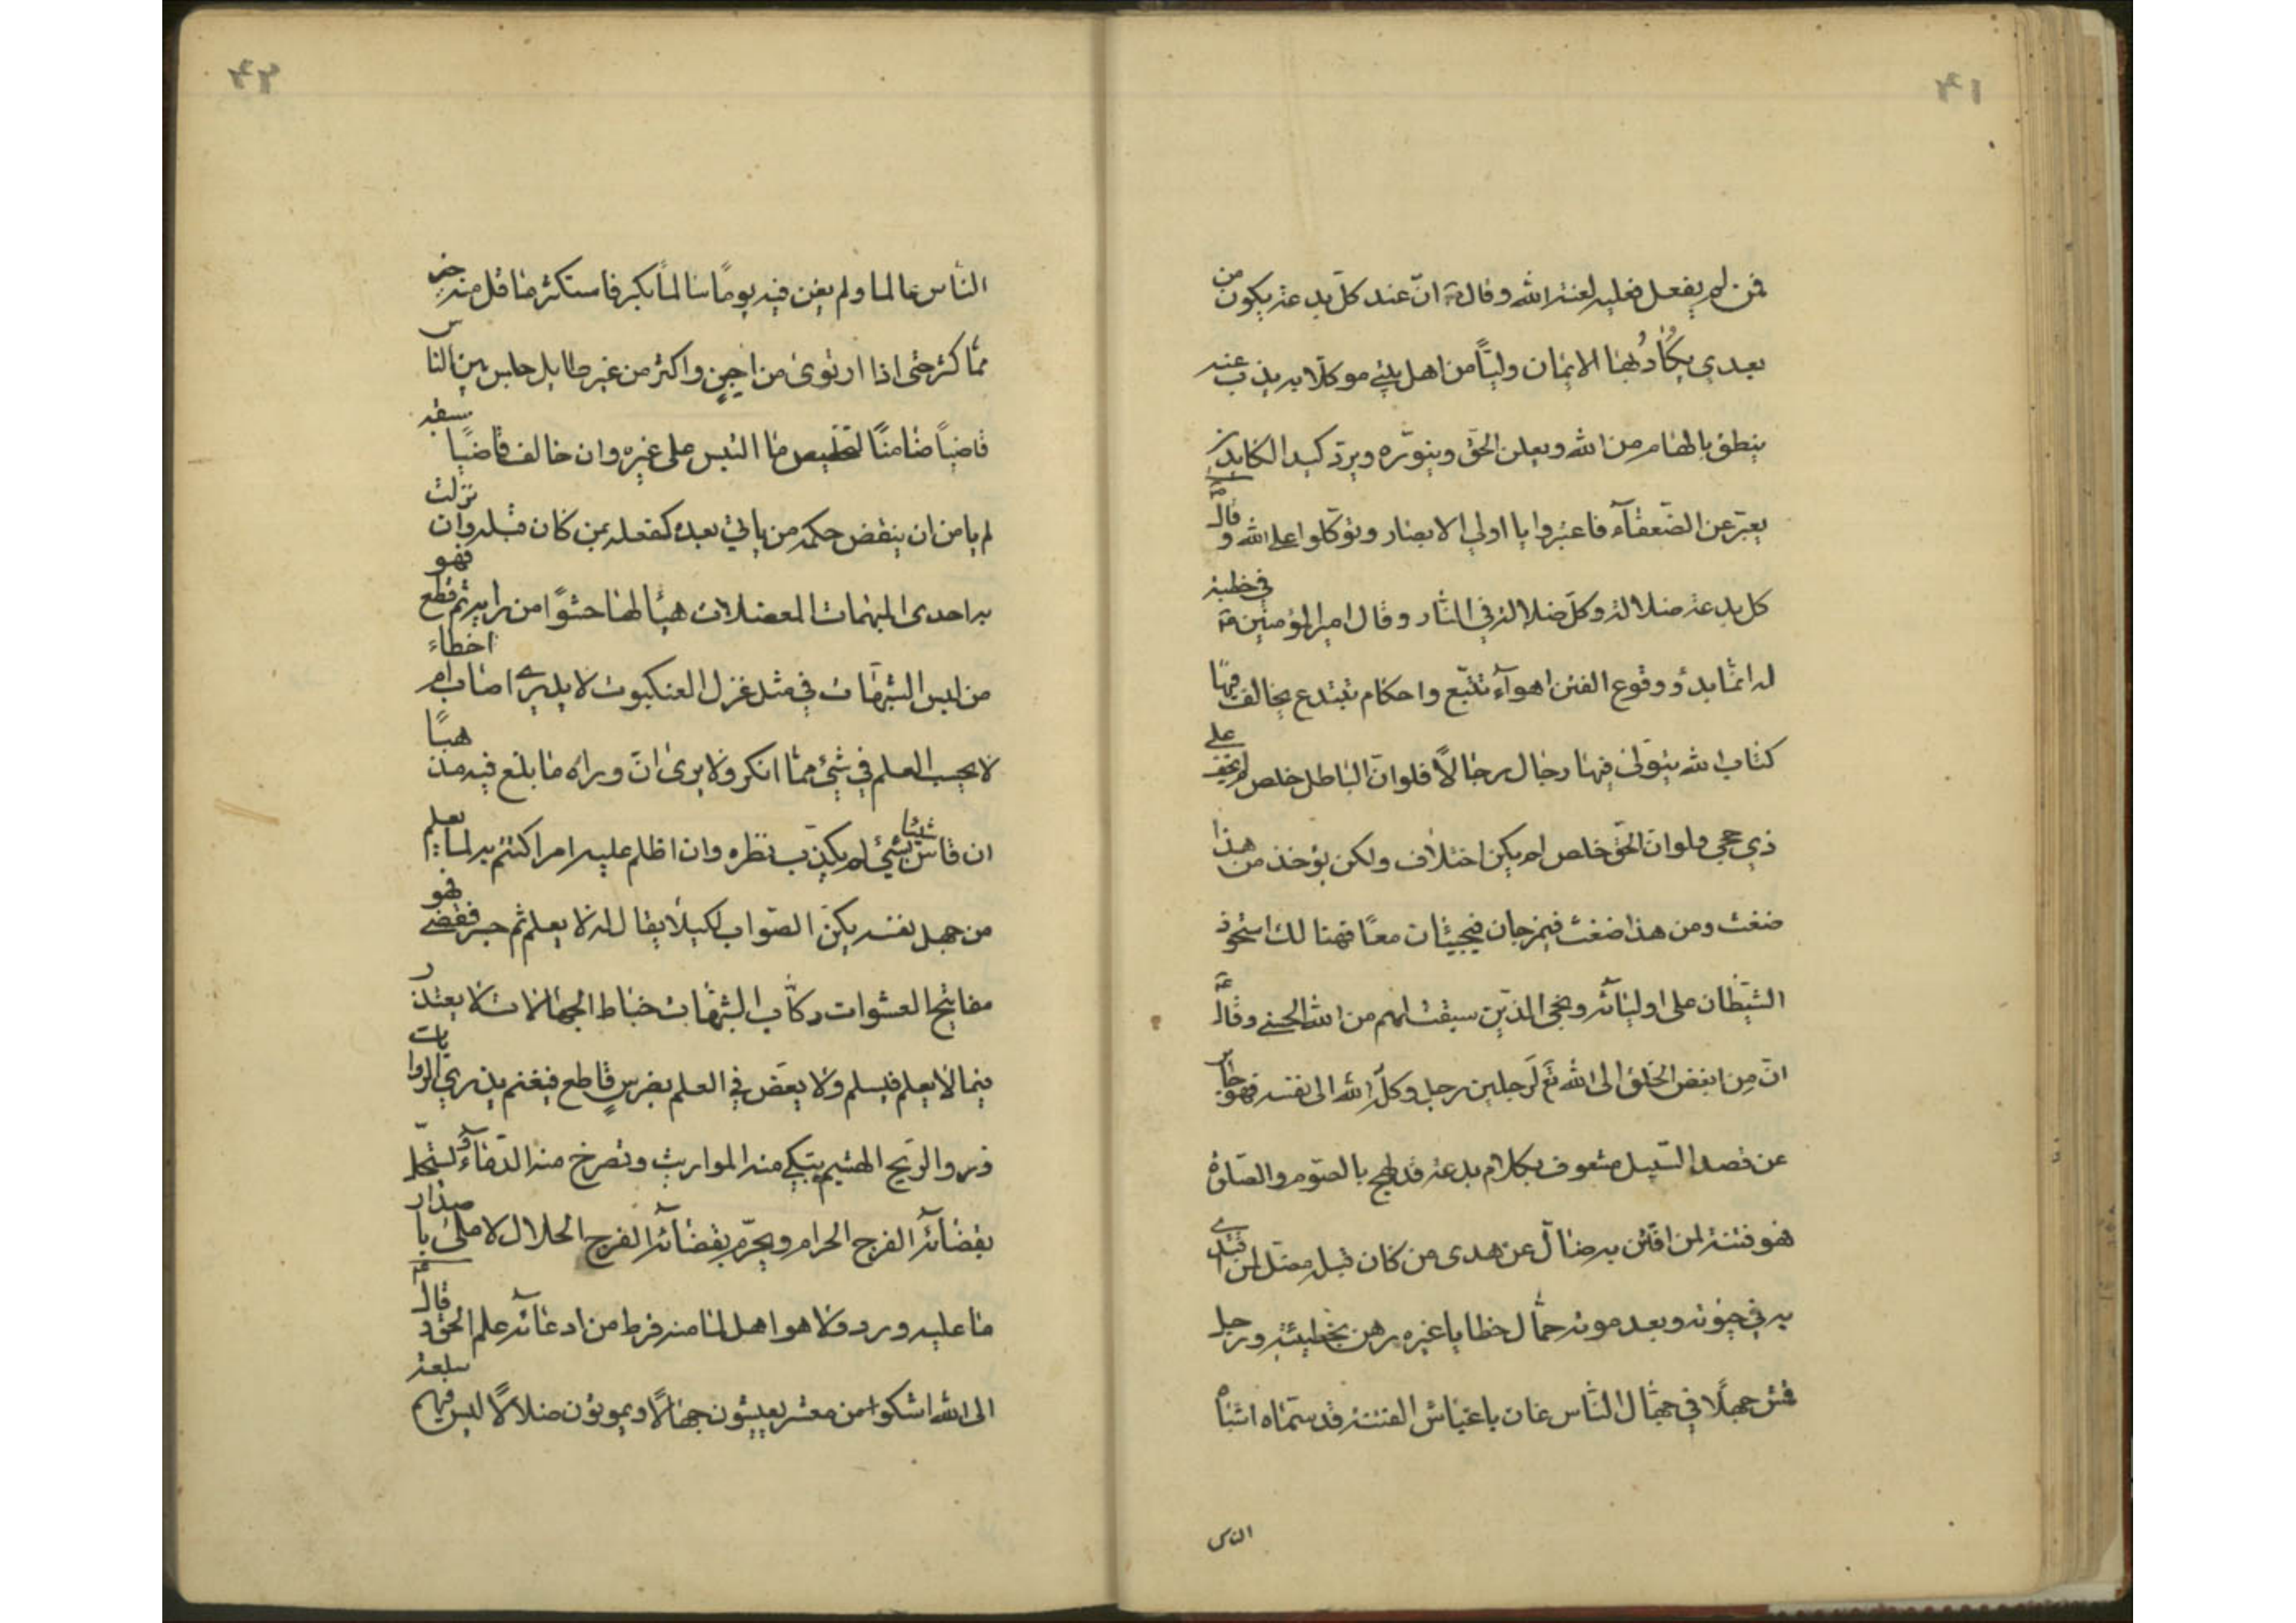 ۴۱
فمن لم يفعل فعليه لعنة الله وقال ع انّ عند كلّ بدعة يكون من
بعدي يكاد بها الايمان وليّاً من اهل بيتي موكلا به يذب عنه
ينطق بالهام من الله ويعلن الحق وينوّره ويردّ كيد الكايدين
يعبّر عن الضّعفآء فاعتبروا يا اولي الابصار وتوكّلوا على الله وقال ع
كل بدعة ضلالة وكلّ ضلالة في النّار وقال امير المؤمنين ع في خطبة
له انّما بدؤ وقوع الفتن اهوآء تتّبع واحكام تبتدع يخالف فيها
كتاب الله يتولّى فيها رجال رجالاً فلو انّ الباطل خلص لم يخف على
ذي حجى ولو انّ الحقّ خلص لم يكن اختلاف ولكن يؤخذ من هذا
ضغث ومن هذا ضغث فيمزجان فيجيئان معاً فهنالك استحوذ
الشّيطان على اوليآئه ونجى الذّين سبقت لهم من الله الحسنى وقال ع
انّ من ابغض الخلق الى الله تع لرجلين رجل وكلّه الله الى نفسه فهو جاير
عن قصد السّبيل مشعوف بكلام بدعة قد لهج بالصّوم والصّلوة
فهو فتنة لمن افتتن به ضالّ عن هدى من كان قبله مضلّ لمن اقتدى
به في حيوته وبعد موته حمّال خطايا غيره رهن بخطيئته ورجل
قمش جهلاً في جهّال النّاس عان باغباش الفتنة قد سمّاه اشباه
الناس
۴۲
النّاس عالما ولم يغن فيه يوماً سالماً بكر فاستكثر ما قل منه خير
ممّا كثر حتى اذا ارتوى من اجن واكثر من غير طايل جلس بين النّاس
قاضياً ضامناً لتخليص ما التبس على غيره وان خالف قاضياً سبقه
لم يامن ان ينقض حكمه من ياتي بعده كفعله بمن كان قبله وان نزلت
به احدى المبهمات المعضلات هيّأ لها حشوًا من رايه ثم قطع فهو
من لبس الشّبهات في مثل غزل العنكبوت لا يدري اصاب ام اخطاء
لا يحسب العلم في شئ ممّا انكر ولا يرى انّ وراه ما بلغ فيه مذهباً
ان قاس شيئا بشئ لم يكذّب نظره وان اظلم عليه امر اكتتم به لما يعلم
من جهل نفسه يكنّ الصّواب لكيلا يقال له لا يعلم ثم جسر فقضى فهو
مفاتيح العشوات ركّاب الشّبهات خباط الجهالات لا يعتذر
ممّا لا يعلم فيسلم ولا يعضّ في العلم بضرس قاطع فيغنم يذري الروايات
ذرو الرّيح الهشيم يبكي منه المواريث وتصرخ منه الدّمآء يستحلّ
بقضآئه الفرج الحرام ويحرّم بقضآئه الفرج الحلال لا ملئ باصدار
ما عليه ورد ولا هو اهل لما منه فرط من ادعآئه علم الحق وقال ع
الى الله اشكو من معشر يعيشون جهالاً ويموتون ضلالاً ليس فيهم سلعة